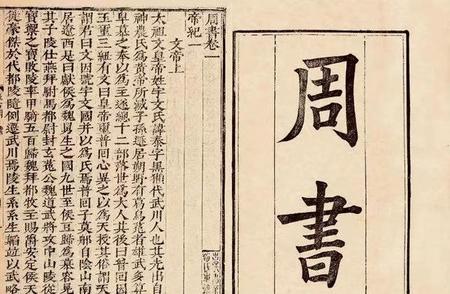 周書
周書卷一
帝紀一
文帝上
太祖文皇帝姓宇文氏諱泰字黑獺代武川人也其先出自
神農氏為黃帝所滅子孫遯居朔野有葛烏菟者雄武多
卑慕之奉以為主遂總十二部落世為大人其後曰普回因
玉璽三紐有文曰皇帝璽普回心異之以為天授其俗謂天
謂君曰文因號宇文國并以為氏焉普回子莫那自陰山南
居遼西是曰獻侯為魏舅生之國九世至侯豆歸為慕容晃
其子陵仕燕拜駙馬都尉封玄菟公魏道武將攻中山陵從
寶禦之寶敗陵率甲騎五百歸魏拜都牧主賜爵安定侯天
徙豪傑於代都陵隨例遷武川焉陵生系系生韜並以武略